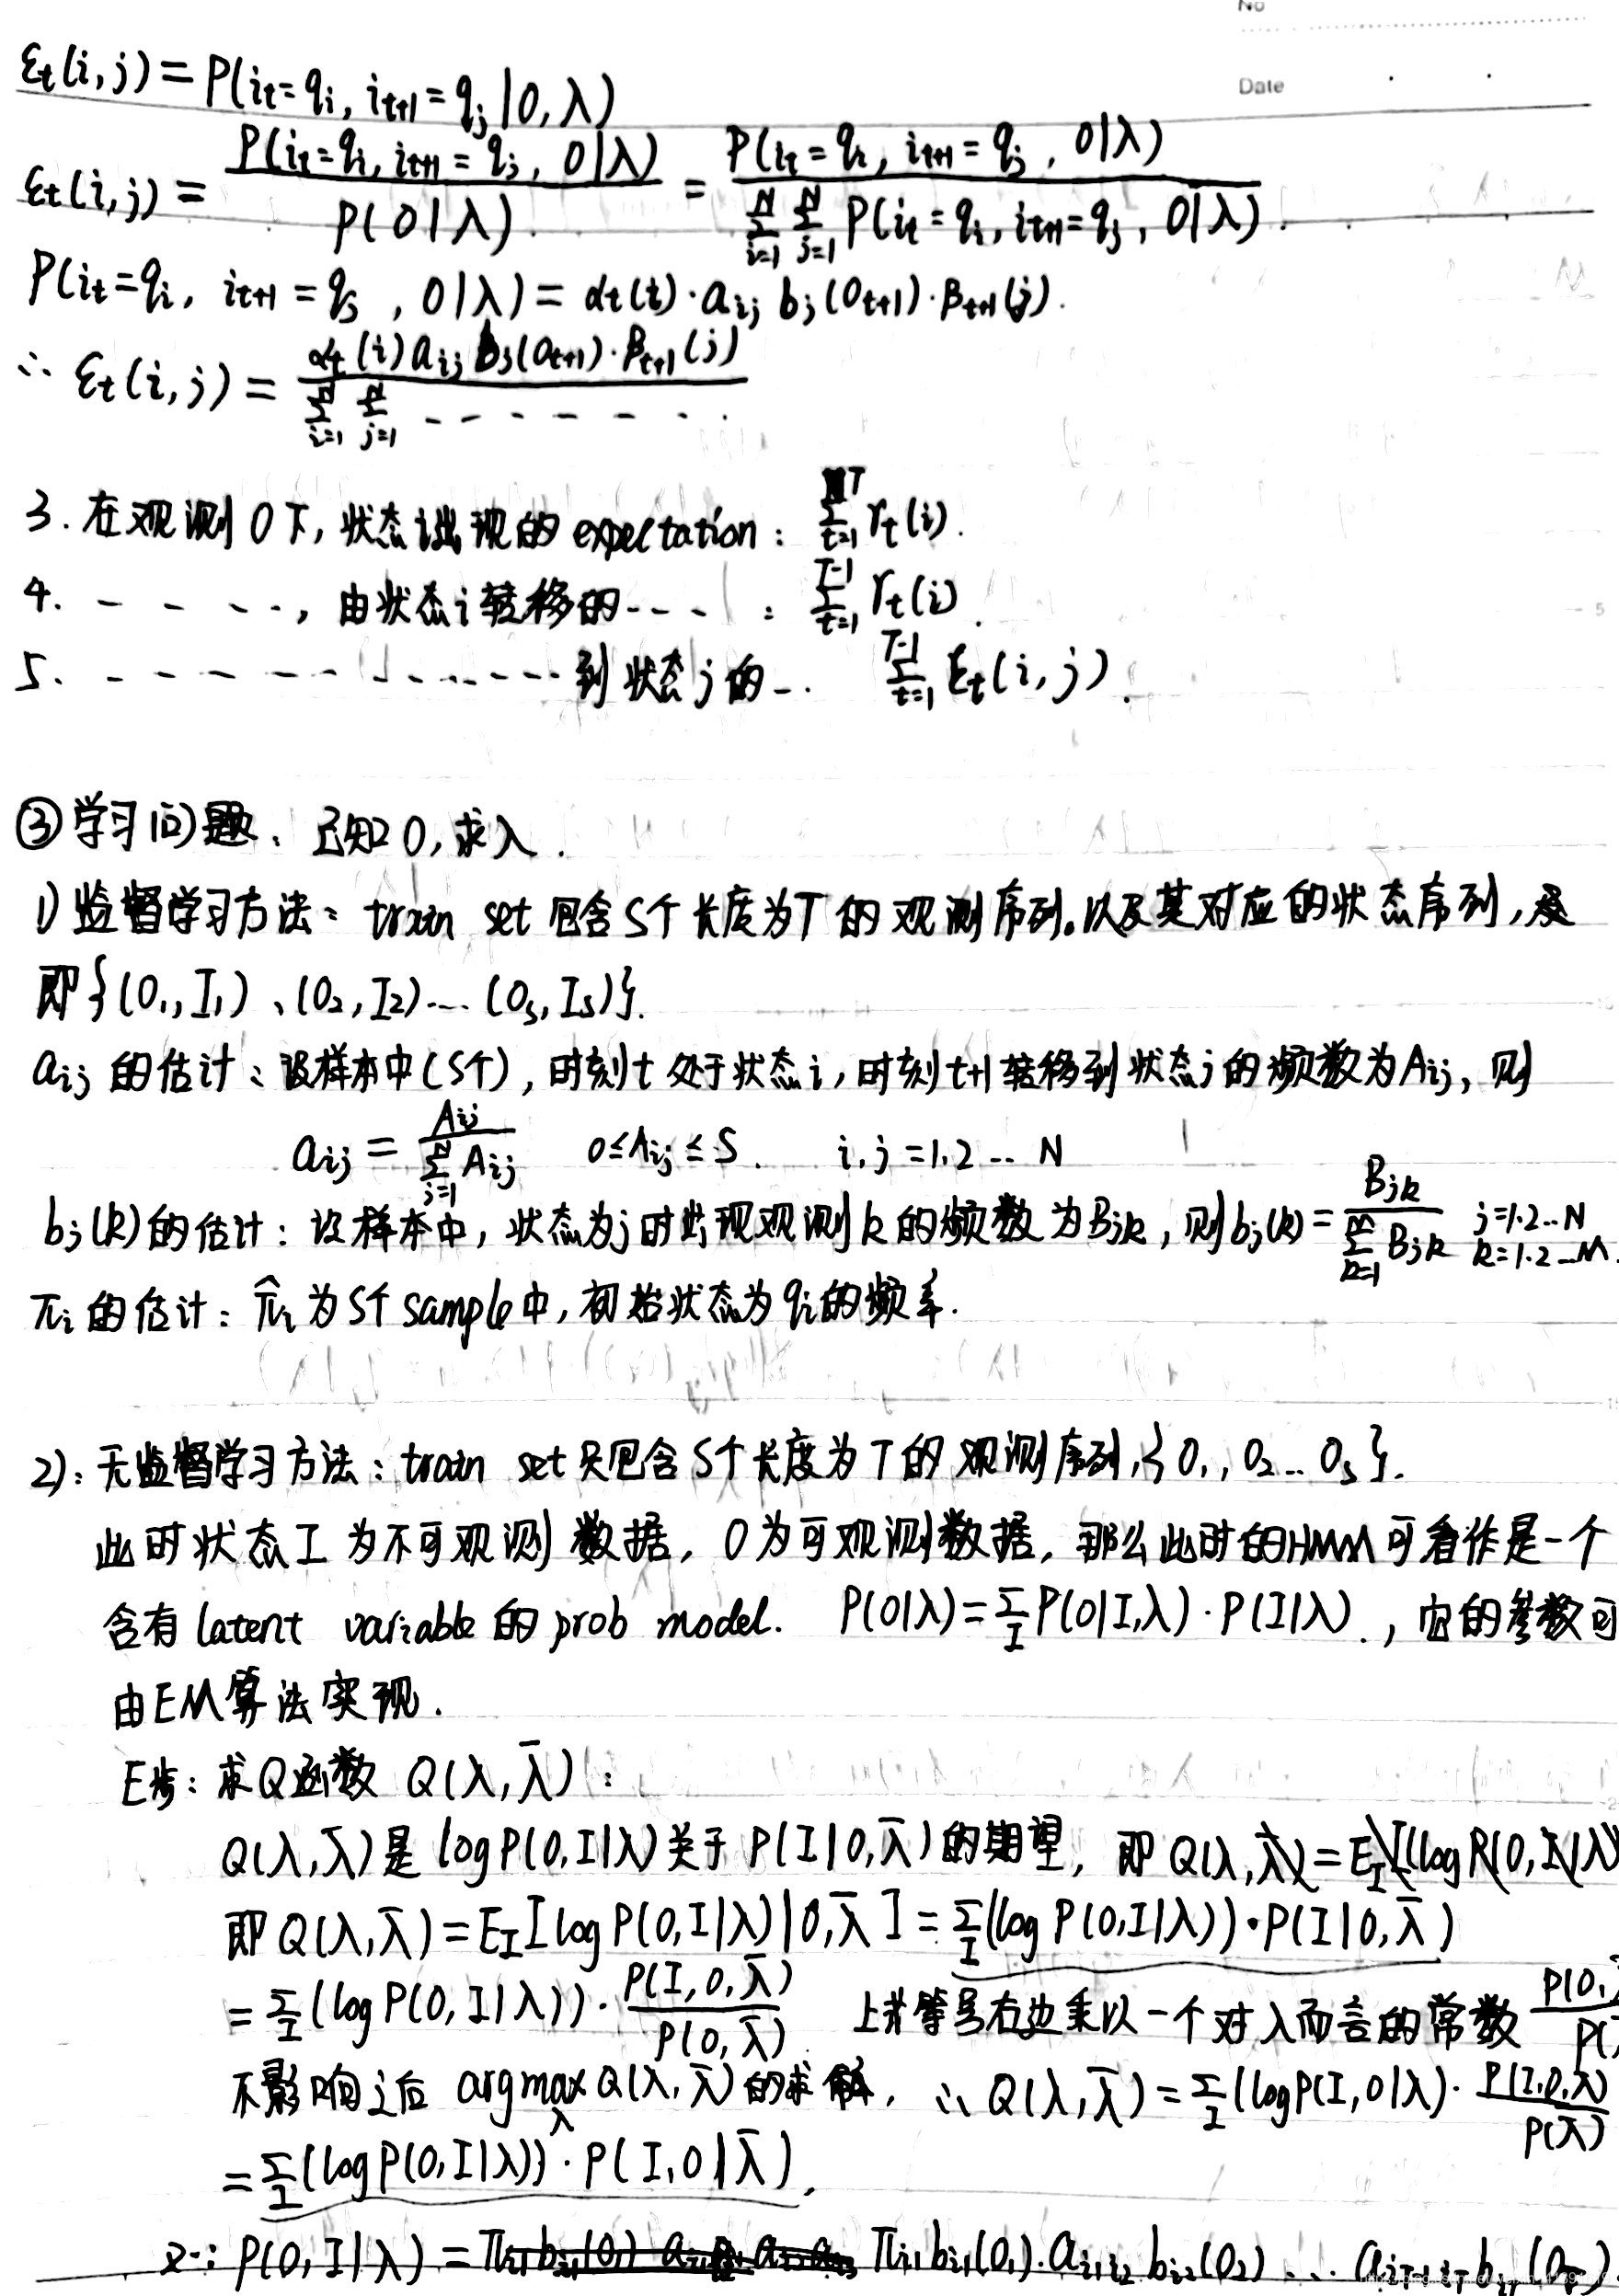 No
Date
ξt(i,j) = P(it=qi, it+1=qj | O, λ)
ξt(i,j) = P(it=qi, it+1=qj, O|λ) / P(O|λ) = P(it=qi, it+1=qj, O|λ) / Σ_{i=1}^{N} Σ_{j=1}^{N} P(it=qi, it+1=qj, O|λ).
P(it=qi, it+1=qj, O|λ) = αt(i)·aij bj(Ot+1)·βt+1(j).
∴ ξt(i,j) = αt(i) aij bj(Ot+1)·βt+1(j) / Σ_{i=1}^{N} Σ_{j=1}^{N} - - - - - - -
3. 在观测O下, 状态i出现的 expectation: Σ_{t=1}^{T} γt(i).
4. - - - - -, 由状态i转移的 - - - : Σ_{t=1}^{T-1} γt(i).
5. - - - - - - - - - - - 到状态j的 - .. Σ_{t=1}^{T-1} ξt(i,j).
③学习问题、已知O,求λ.
1) 监督学习方法: train set 包含S个长度为T的观测序列。以及其对应的状态序列,
即{(O1,I1)、(O2,I2)---(Os,Is)}.
aij 的估计: 设样本中(S个), 时刻t处于状态i, 时刻t+1转移到状态j的频数为Aij, 则
aij = Aij / Σ_{j=1}^{N} Aij 0≤Aij≤S. i,j=1.2 -- N
bj(k)的估计: 设样本中, 状态为j时出现观测k的频数为Bjk, 则bj(k) = Bjk / Σ_{k=1}^{M} Bjk j=1.2..N k=1.2..M.
πi 的估计: π̂i 为S个 sample中, 初始状态为qi的频率.
2): 无监督学习方法: train set 只包含S个长度为T的观测序列,{O1, O2 .. Os}.
此时状态I为不可观测数据, O为可观测数据, 那么此时的HMM可看作是一个
含有 latent variable 的 prob model. P(O|λ) = Σ_I P(O|I,λ)·P(I|λ)., 它的参数可
由EM算法实现.
E步: 求Q函数 Q(λ,λ̄):
Q(λ,λ̄)是 logP(O,I|λ)关于 P(I|O,λ̄)的期望, 即 Q(λ,λ̄) = E_I[(log P(O,I|λ)
即 Q(λ,λ̄) = E_I[log P(O,I|λ)|O,λ̄] = Σ_I (log P(O,I|λ))·P(I|O,λ̄)
= Σ_I (log P(O,I|λ))·P(I,O,λ̄) / P(O,λ̄) 上式等号右边乘以一个对λ而言的常数 P(O, / P(
不影响之后 argmax_λ Q(λ,λ̄)的求解, ∴ Q(λ,λ̄) = Σ_I (logP(I,O|λ)·P(I,O,λ̄) / P(λ̄)
= Σ_I (log P(O,I|λ))·P(I,O|λ̄),
又∵ P(O,I|λ) = πi1 bi1(O1)·ai1i2 bi2(O2) ... aiT-1iT biT(OT)